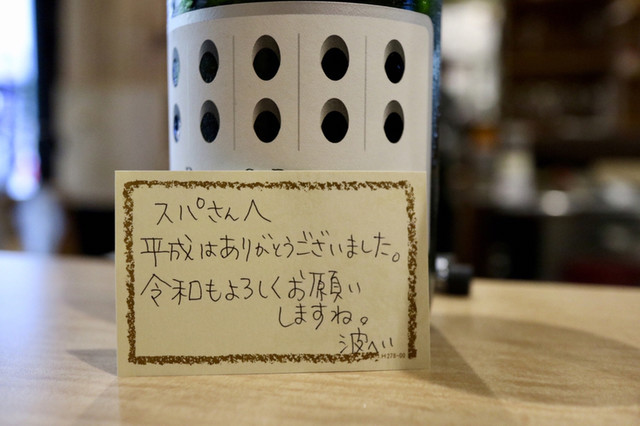 スパさんへ
平成はありがとうございました。
令和もよろしくお願い
しますね。
波へい